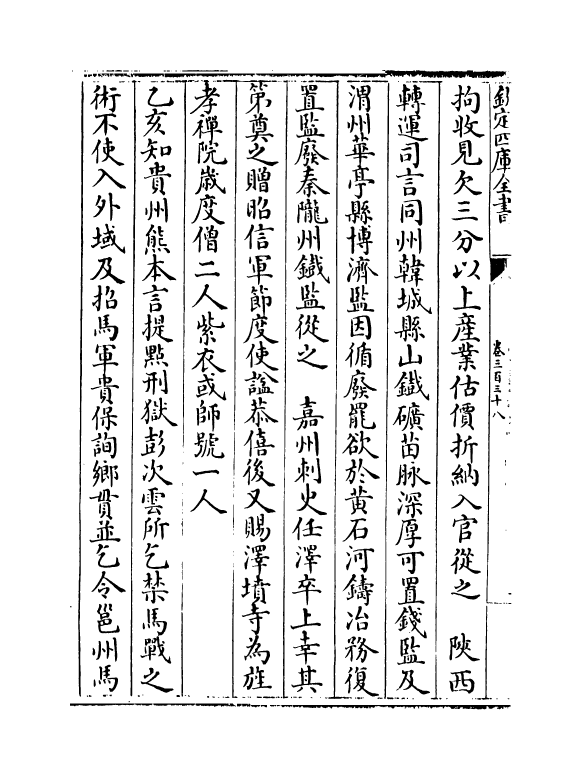 欽定四庫全書
卷三百三十八
拘收見欠三分以上産業估價折納入官從之　陜西
轉運司言同州韓城縣山鐵礦苗脉深厚可置錢監及
渭州華亭縣博濟監因循廢罷欲於黄石河鑄冶務復
置監廢秦隴州鐵監從之　嘉州刺史任澤卒上幸其
第奠之贈昭信軍節度使諡恭僖後又賜澤墳寺為旌
孝禪院歲度僧二人紫衣或師號一人
乙亥知貴州熊本言提點刑獄彭次雲所乞禁馬戰之
術不使入外域及招馬軍貴保詢鄉貫並乞令邕州馬